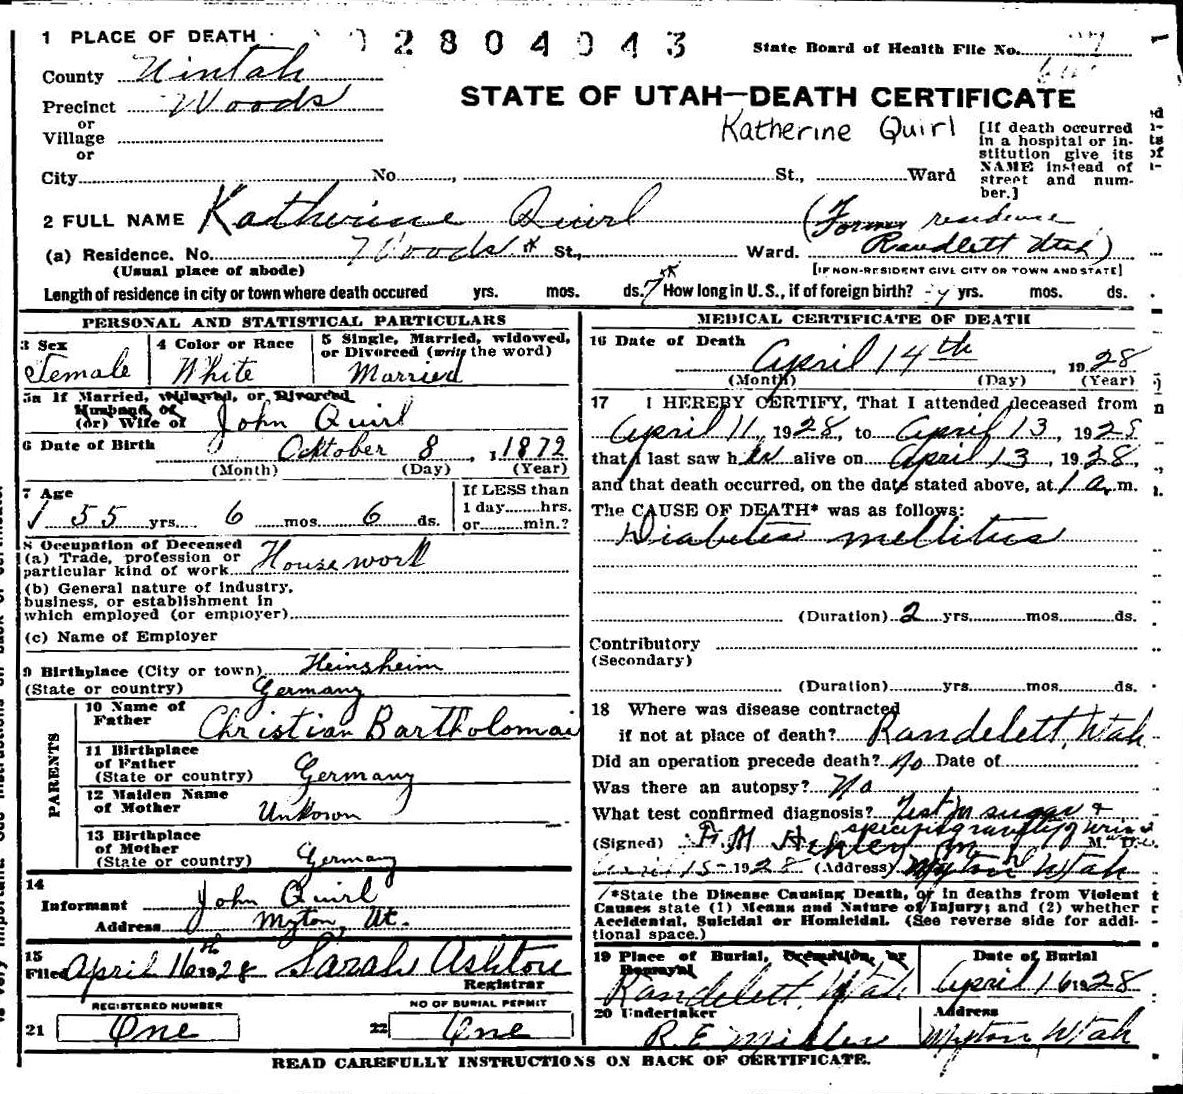 1 PLACE OF DEATH
2 8 0 4 0 4 3
State Board of Health File No.
County Uintah
Precinct Woods
or
Village
or
STATE OF UTAH—DEATH CERTIFICATE
Katherine Quirl
[If death occurred in a hospital or institution give its NAME instead of street and number.]
City No. , St., Ward
2 FULL NAME Katherine Quirl (Former residence
(a) Residence. No. Woods St., Ward. Randlett Utah)
(Usual place of abode) [IF NON-RESIDENT GIVE CITY OR TOWN AND STATE]
Length of residence in city or town where death occured yrs. mos. ds. 7 How long in U. S., if of foreign birth? yrs. mos. ds.
PERSONAL AND STATISTICAL PARTICULARS
3 Sex
Female
4 Color or Race
White
5 Single, Married, widowed, or Divorced (write the word)
Married
5a If Married, Widowed, or Divorced
Husband of
(or) Wife of John Quirl
6 Date of Birth Oktober 8, 1872
(Month) (Day) (Year)
7 Age
55 yrs. 6 mos. 6 ds.
If LESS than
1 day hrs.
or min.?
8 Occupation of Deceased
(a) Trade, profession or
particular kind of work House work
(b) General nature of industry,
business, or establishment in
which employed (or employer)
(c) Name of Employer
9 Birthplace (City or town) Heinsheim
(State or country) Germany
PARENTS
10 Name of
Father Christian Bartholomai
11 Birthplace
of Father
(State or country) Germany
12 Maiden Name
of Mother Unkown
13 Birthplace
of Mother
(State or country) Germany
14
Informant John Quirl
Address Myton, Ut.
15
Filed April 16th 1928 Sarah Ashton
Registrar
REGISTERED NUMBER
21 One
NO OF BURIAL PERMIT
22 One
MEDICAL CERTIFICATE OF DEATH
16 Date of Death
April 14th 1928
(Month) (Day) (Year)
17 I HEREBY CERTIFY, That I attended deceased from
April 11, 1928, to April 13, 1928
that I last saw her alive on April 13, 1928,
and that death occurred, on the date stated above, at 1 a. m.
The CAUSE OF DEATH* was as follows:
Diabetes mellitus
(Duration) 2 yrs. mos. ds.
Contributory
(Secondary)
(Duration) yrs. mos. ds.
18 Where was disease contracted
if not at place of death? Randelett, Utah
Did an operation precede death? No Date of
Was there an autopsy? No
What test confirmed diagnosis? Test in sugar &
specific gravity of urine
(Signed) M. D.
April 15-1928 (Address) Myton Utah
*State the Disease Causing Death, or in deaths from Violent
Causes state (1) Means and Nature of Injury; and (2) whether
Accidental, Suicidal or Homicidal. (See reverse side for addi-
tional space.)
19 Place of Burial, Cremation, or
Removal
Randelett Utah
Date of Burial
April 16 1928
20 Undertaker
R. E. Miller
Address
Myton Utah
READ CAREFULLY INSTRUCTIONS ON BACK OF CERTIFICATE.